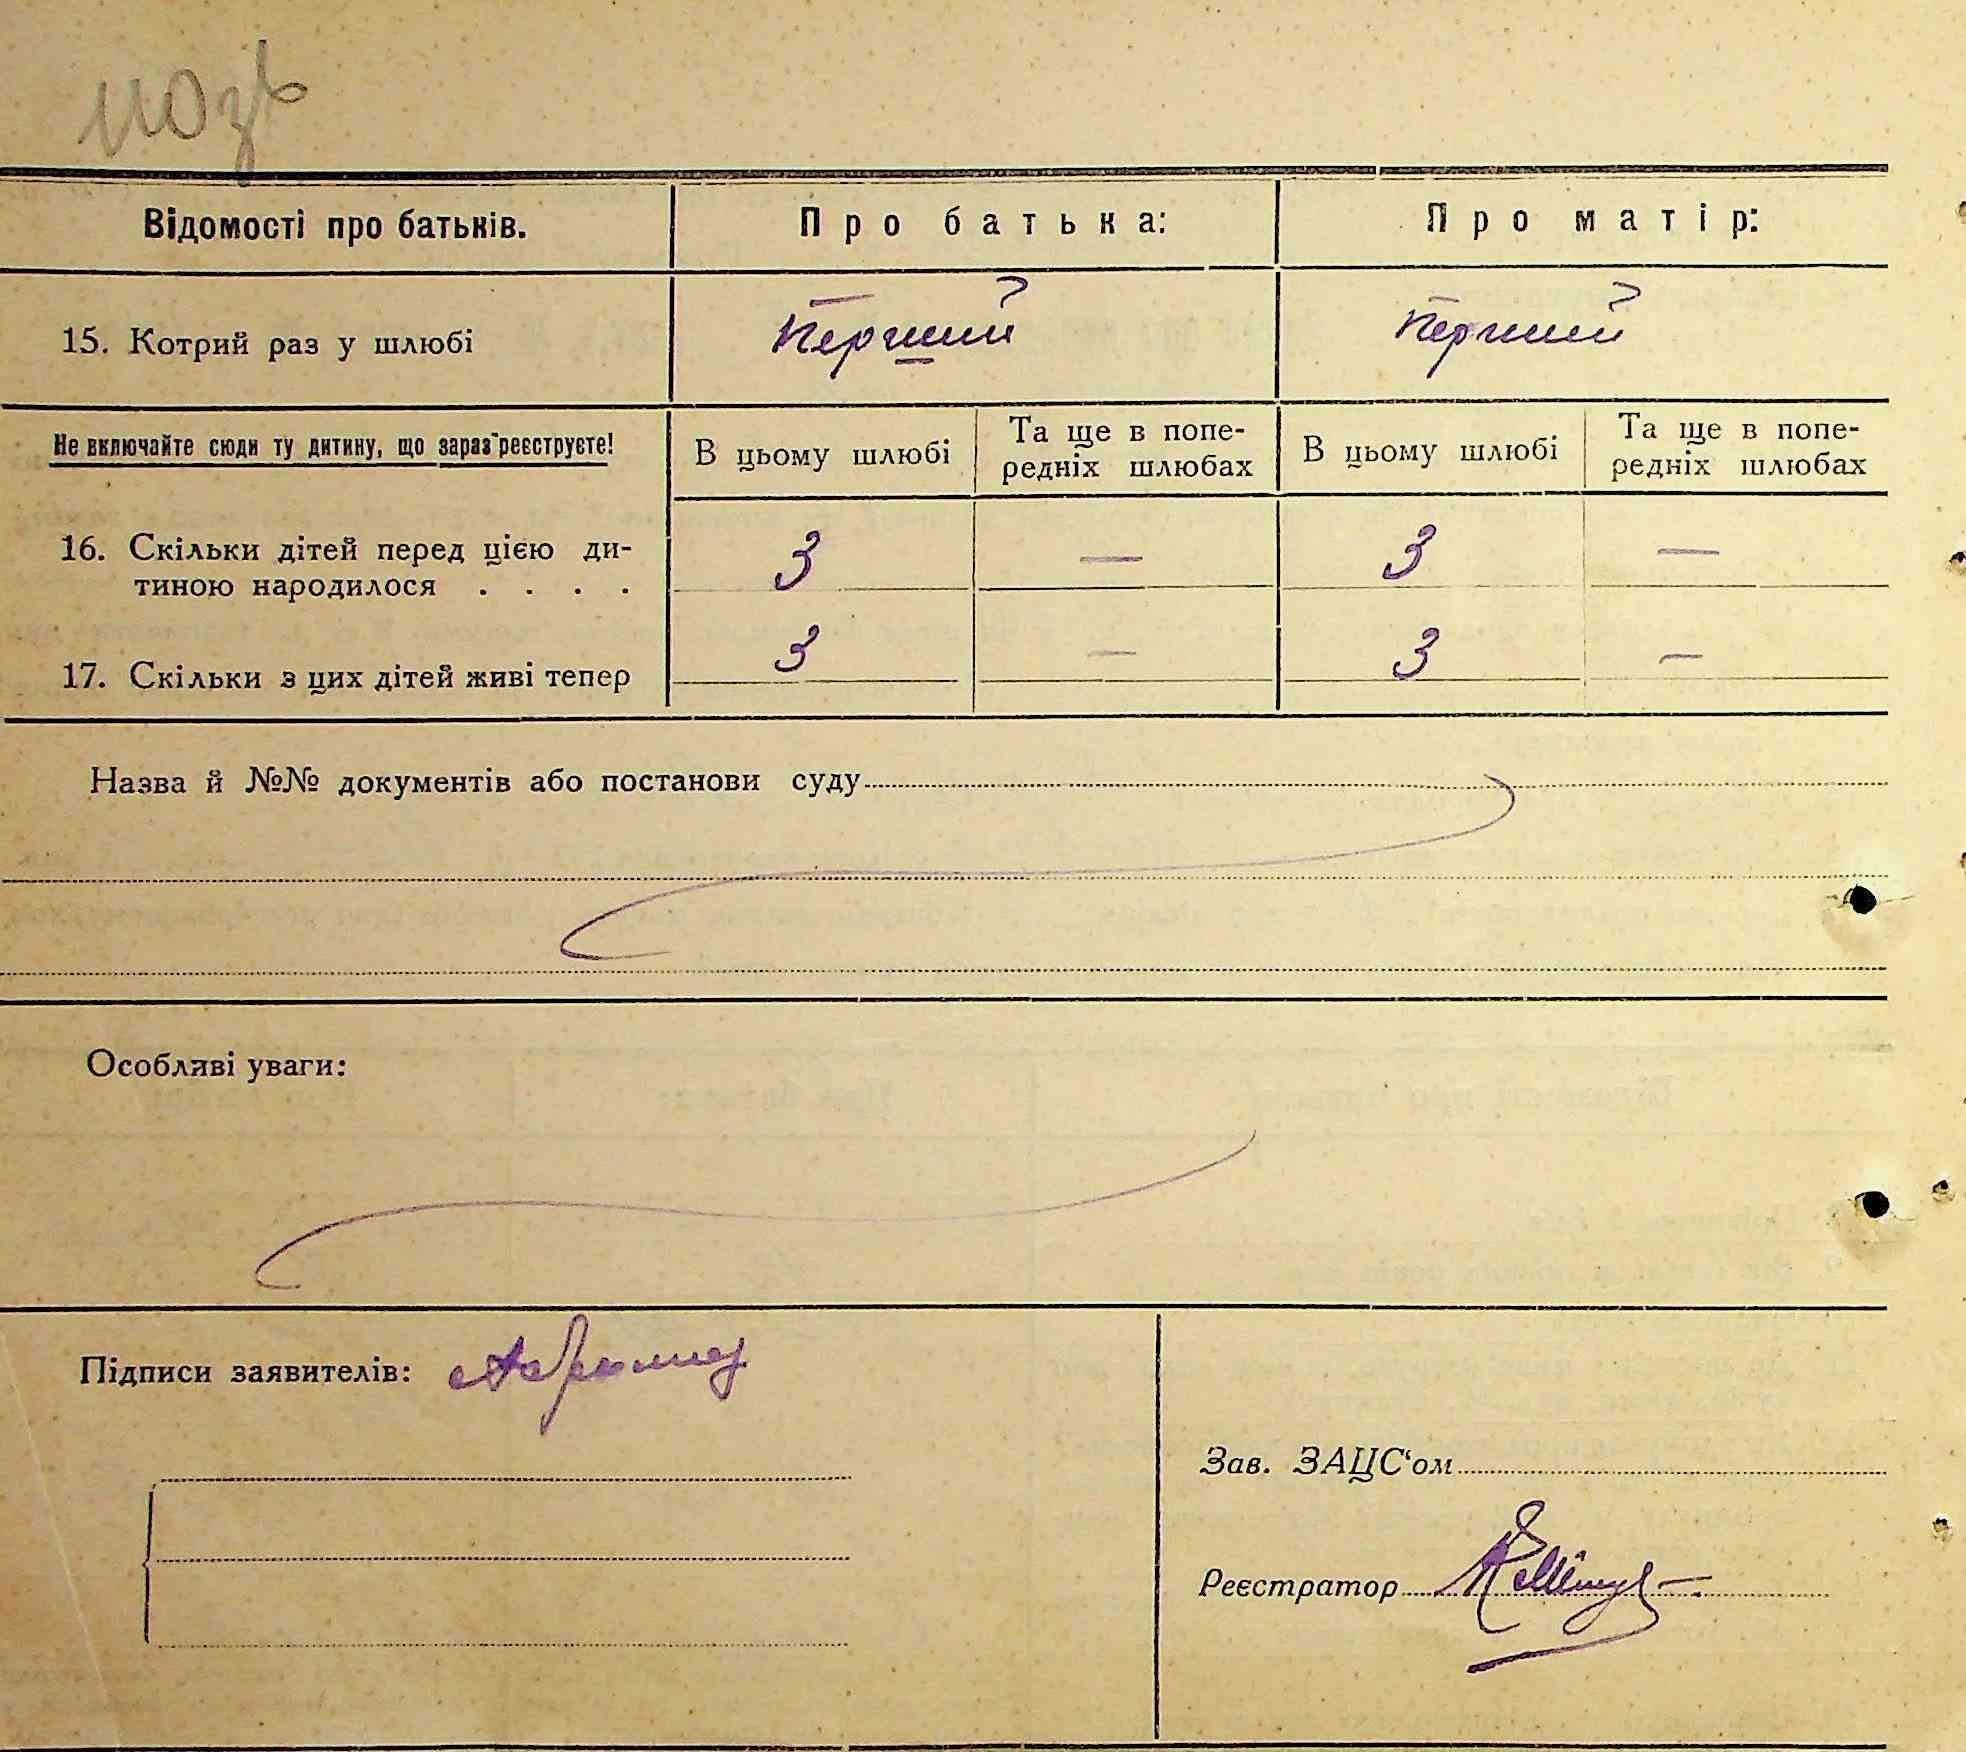 Відомості про батьків. Про батька: Про матір:
15. Котрий раз у шлюбі Перший Перший
Не включайте сюди ту дитину, що зараз реєструєте! В цьому шлюбі Та ще в попе-
редніх шлюбах В цьому шлюбі Та ще в попе-
редніх шлюбах
16. Скільки дітей перед цією ди-
тиною народилося . . . . 3 — 3 —
17. Скільки з цих дітей живі тепер 3 — 3 —
Назва й №№ документів або постанови суду
Особливі уваги:
Підписи заявителів:
Зав. ЗАЦС‘ом
Реєстратор